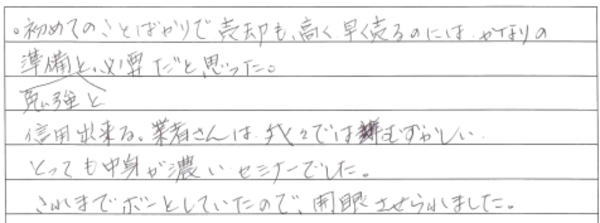 。初めてのことばかりで売却も、高く早く売るのには、かなりの
準備と、必要だと、思った。
勉強と
信用出来る。業者さんは、我々ではむずかしい、
とっても中身が濃いセミナーでした。
これまでボーとしていたので、開眼させられました。